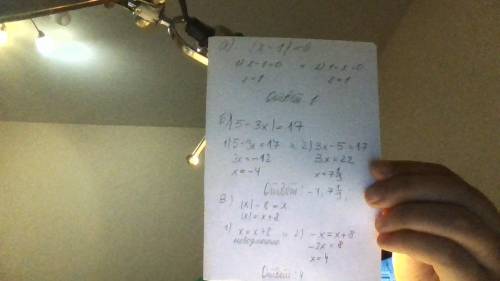 а) |x - 1| = 0
1) x - 1 = 0 или 2) 1 - x = 0
x = 1 x = 1
Ответ: 1
б) |5 - 3x| = 17
1) 5 - 3x = 17 или 2) 3x - 5 = 17
3x = -12 3x = 22
x = -4 x = 7 1/3
Ответ: -4, 7 1/3
в) |x| - 8 = x
|x| = x + 8
1) x = x + 8 или 2) -x = x + 8
невозможно -2x = 8
x = 4
Ответ: 4